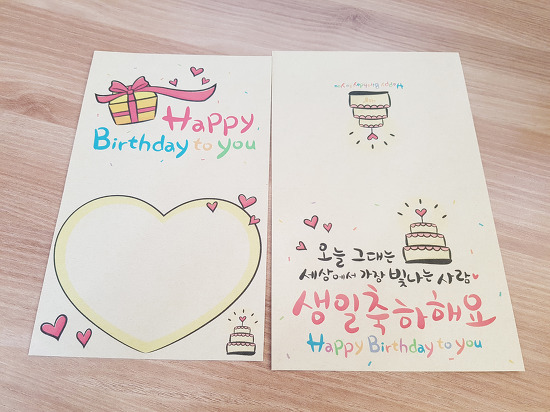 Happy
Birthday to you
Happy Birthday to you
오늘 그대는
세상에서 가장 빛나는 사람
생일축하해요
Happy Birthday to you